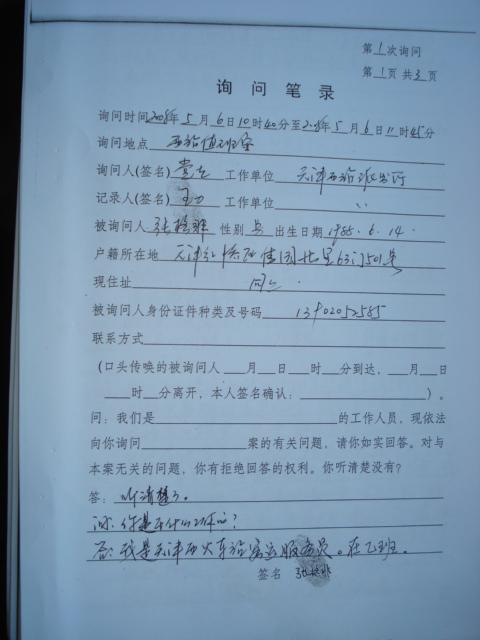 第1次询问
第1页 共3页
询问笔录
询问时间2008年5月6日10时40分至2008年5月6日11时45分
询问地点 西站值班室
询问人(签名) 工作单位 天津西站派出所
记录人(签名) 工作单位 〃
被询问人 张 性别 男 出生日期 1985.6.14.
户籍所在地 天津 佳园北里63门501号
现住址 同上.
被询问人身份证件种类及号码 13902052585
联系方式
(口头传唤的被询问人 月 日 时 分到达, 月 日
时 分离开,本人签名确认: )。
问:我们是 的工作人员,现依法
向你询问 案的有关问题,请你如实回答。对与
本案无关的问题,你有拒绝回答的权利。你听清楚没有?
答:听清楚了。
问:你是干什么工作的?
答:我是天津西火车站客运服务员。在乙班。
签名 张